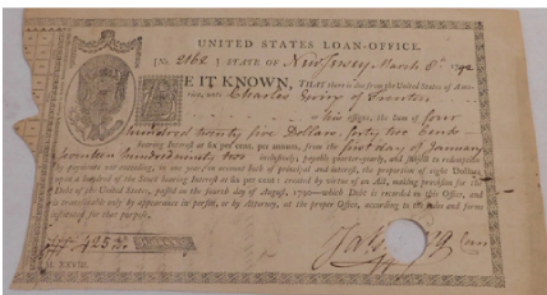 UNITED STATES LOAN-OFFICE.
[No. 2162 ] STATE OF New Jersey March 8th 1792
BE IT KNOWN, THAT there is due from the United States of Ame-
rica, unto Charles Ewing of Trenton
or his assigns, the Sum of four
hundred twenty five Dollars, forty two Cents
bearing Interest at six per cent. per annum, from the first day of January
seventeen hundred ninety two inclusively, payable quarter-yearly, and subject to redemption
by payments not exceeding, in one year on account both of principal and interest, the proportion of eight Dollars
upon a hundred of the Stock bearing Interest at six per cent: created by virtue of an Act, making provision for the
Debt of the United States, passed on the fourth day of August, 1790—which Debt is recorded in this Office, and
is transferable only by appearance in person, or by Attorney, at the proper Office, according to the rules and forms
instituted for that purpose.
425
XXVIII.